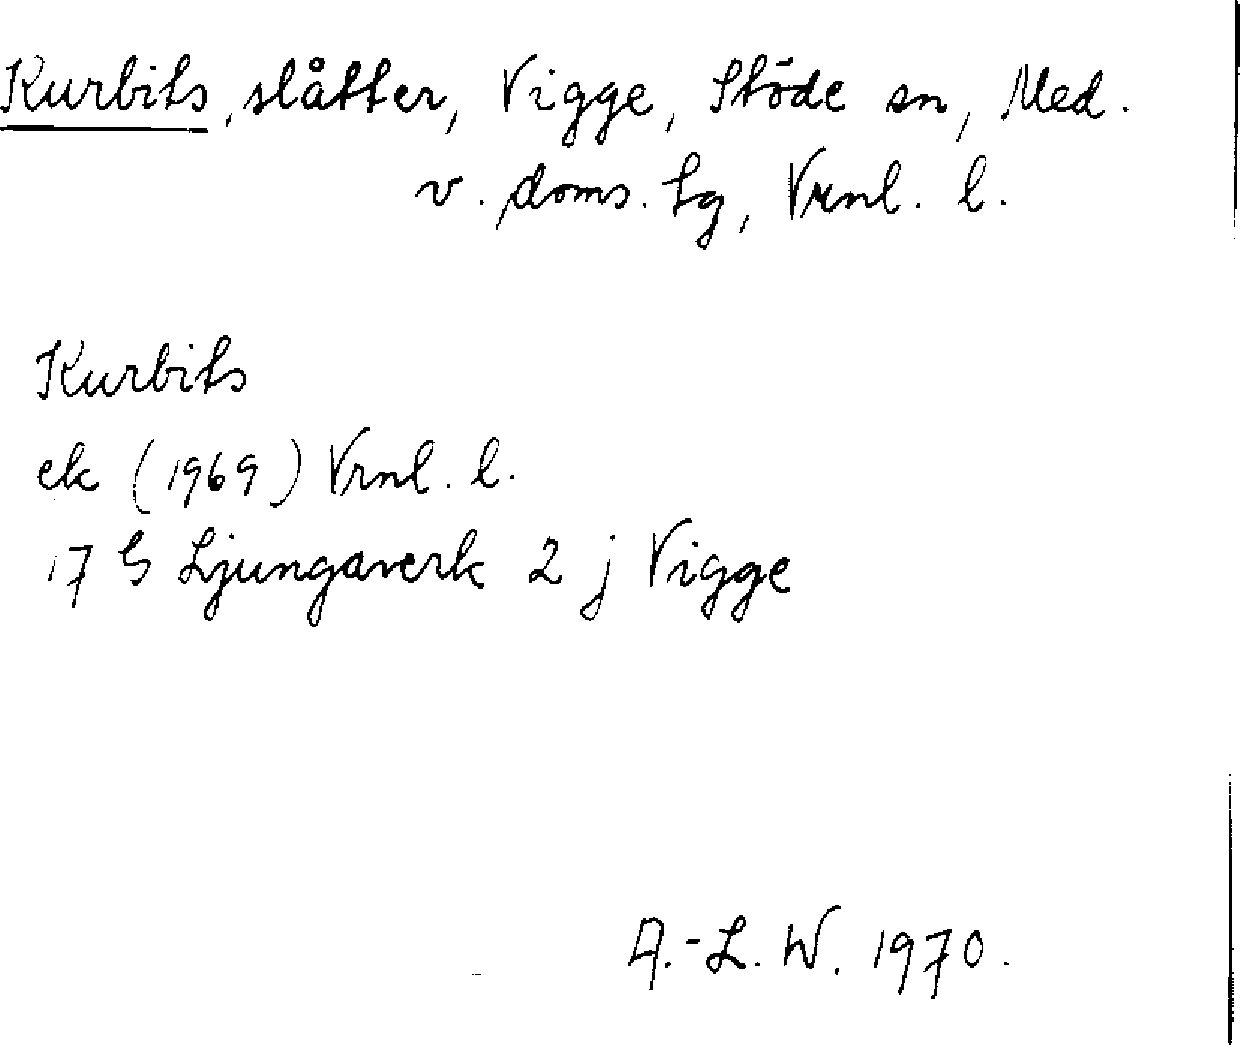 Kurbits, slåtter, Vigge, Stöde sn, Med.
v. doms. tg, Vrnl. l.
Kurbits
ek (1969) Vrnl. l.
17 G Ljungaverk 2 j Vigge
A.-L. W. 1970.